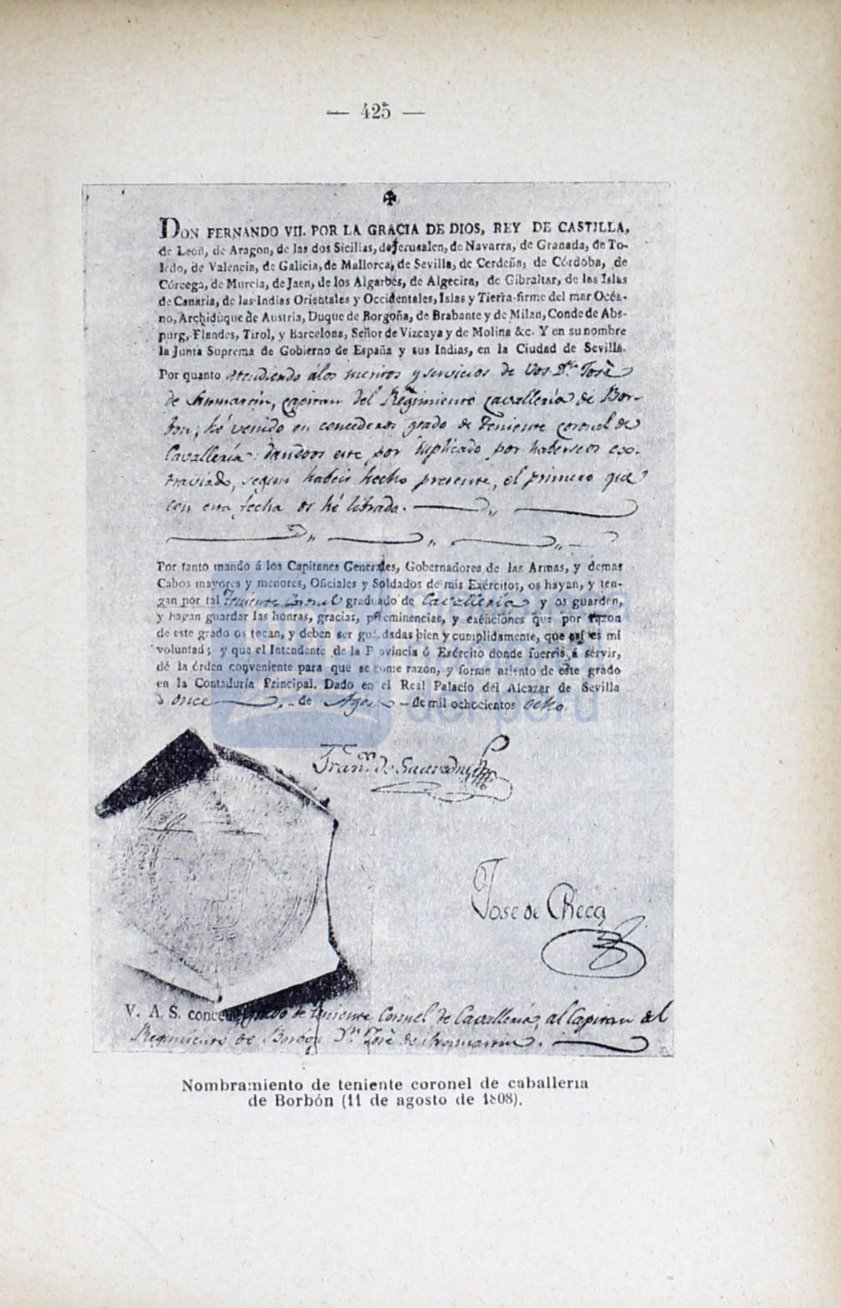 — 425 —
DON FERNANDO VII. POR LA GRACIA DE DIOS, REY DE CASTILLA,
de Leon, de Aragon, de las dos Sicilias, de Jerusalen, de Navarra, de Granada, de To-
ledo, de Valencia, de Galicia, de Mallorca, de Sevilla, de Cerdeña, de Córdoba, de
Córcega, de Murcia, de Jaen, de los Algarbes, de Algecira, de Gibraltar, de las Islas
de Canaria, de las Indias Orientales y Occidentales, Islas y Tierra-firme del mar Océa-
no, Archiduque de Austria, Duque de Borgoña, de Brabante y de Milan, Conde de Abs-
purg, Flandes, Tirol, y Barcelona, Señor de Vizcaya y de Molina &c. Y en su nombre
la Junta Suprema de Gobierno de España y sus Indias, en la Ciudad de Sevilla.
Por quanto atendiendo á los meritos y servicios de Vos Dn. Josè
de Sanmartin, Capitan del Regimiento Cavalleria de Bor-
bon; hé venido en concederos grado de Teniente Coronel de
Cavalleria: dandoos este por duplicado por haberseos ex-
traviado, segun habeis hecho presente, el primero que
con esta fecha os hé librado.
Por tanto mando á los Capitanes Generales, Gobernadores de las Armas, y demas
Cabos mayores y menores, Oficiales y Soldados de mis Exércitos, os hayan, y ten-
gan por tal Teniente Coronel graduado de Cavalleria y os guarden,
y hagan guardar las honras, gracias, preeminencias, y exênciones que por razon
de este grado os tocan, y deben ser guardadas bien y cumplidamente, que asi es mi
voluntad; y que el Intendente de la Provincia ó Exército donde fuereis á servir,
dé la órden conveniente para que se tome razon, y forme asiento de este grado
en la Contaduría Principal. Dado en el Real Palacio del Alcazar de Sevilla
á once de Agos de mil ochocientos ocho.
del perú
Franco. de Saavedra
José de Checa
V. A. S. concede grado de teniente Coronel de Cavalleria, al Capitan del
Regimiento de Borbon Dn. Josè de Sanmartin.
Nombramiento de teniente coronel de caballería
de Borbón (11 de agosto de 1808).